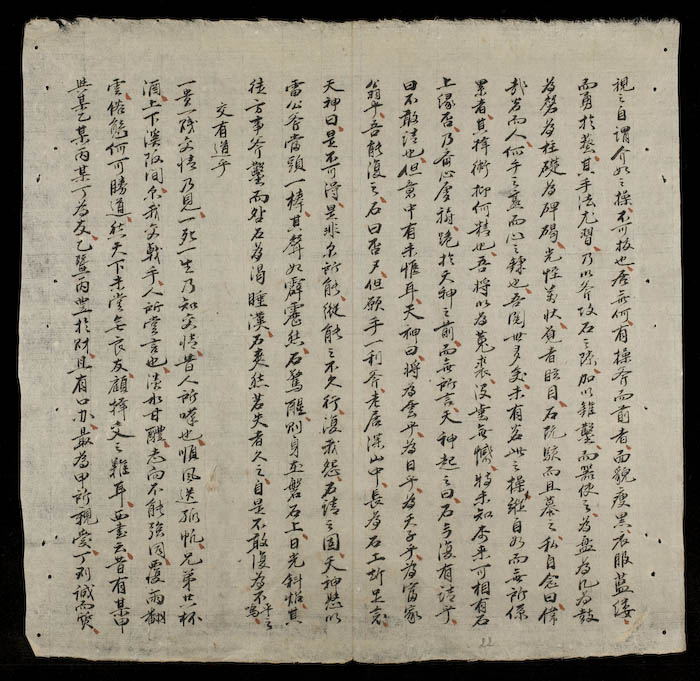 視之自謂介如之操不可拔也居無何有操斧而前者面貌瘦黑衣服藍縷
而勇於藝其手法尤習乃以斧攻石之隙加以錐鑿而器使之為盤為几為鼓
為磬為柱礎為碑碣光怪萬狀覽者眩目石既駭而且慕之私自念曰偉
哉若而人何手之靈而心之鍊也吾閱世多矣未有若此之操縱自如而無所係
累者其擇術抑何精也吾將以為菟裘沒世無憾特未知本來可相有石
上緣否乃齋心虔禱跪於天神之前而無所言天神起之曰石兮復有請乎
曰不敢請也但意中有未愜耳天神曰將為雲乎為日乎為天子乎為富家
翁乎吾能復之石曰否否但願手一利斧老居深山中長為石工斯足矣
天神曰是不可得是非余所能縱能之不久行復我怨石請之固天神怒以
雷公斧當頭一棒其聲如霹靂然石驚醒則身在磐石上日光斜焰其
徒方事斧鑿而呰石為渴睡漢石爽然若失者久之自是不敢復為不平之鳴
交有道乎
一貴一賤交情乃見一死一生乃知交情昔人所嘆也順風送孤帆兄弟廿杯
酒上下溪阪間尔我交戟手人所嘗言也淡水甘醴志向不能強同覆雨翻
雲俗態何可勝道然天下未嘗無良友顧擇交之難耳西書云昔有某甲
與某乙某丙某丁為友乙暨丙豐於財且有口才最為甲所親愛丁則誠而實
22